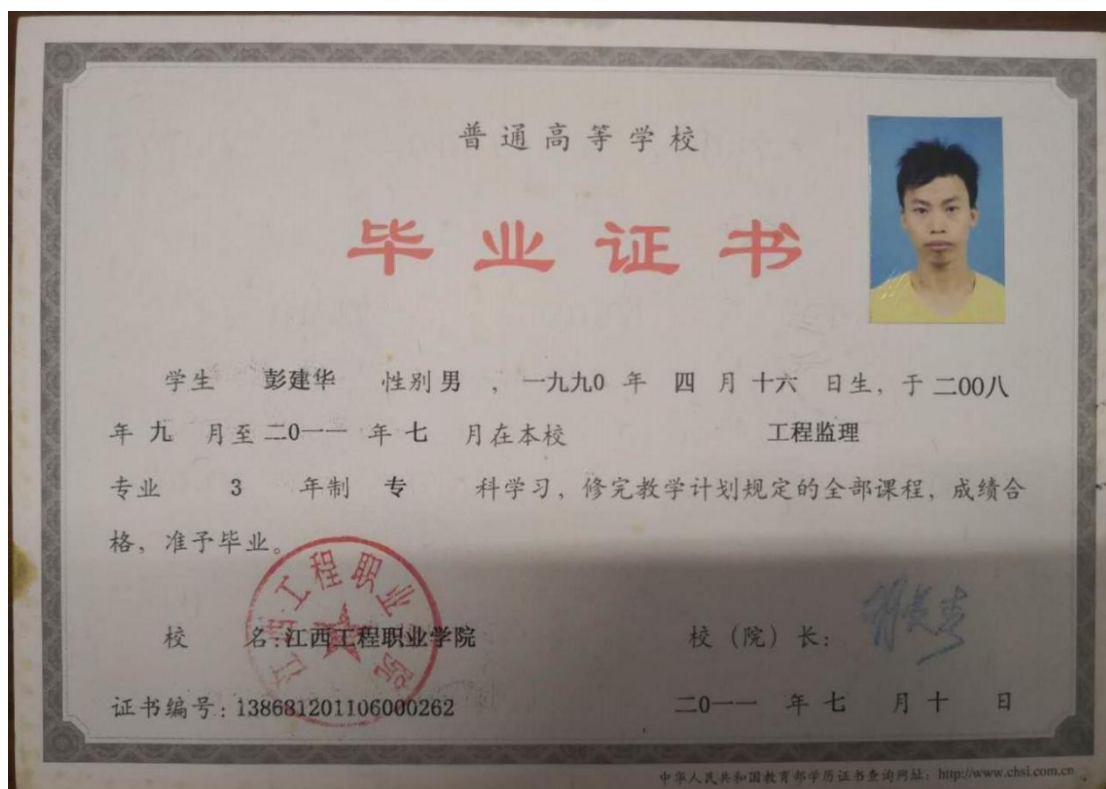 普通高等学校
毕业证书
学生 彭建华 性别 男 , 一九九0 年 四 月 十六 日生, 于 二00八
年 九 月至 二0一一 年 七 月在本校 工程监理
专业 3 年制 专 科学习, 修完教学计划规定的全部课程, 成绩合
格, 准予毕业。
江西工程职业学院
校 名:江西工程职业学院 校(院)长:
证书编号: 138681201106000262 二0一一 年 七 月 十 日
中华人民共和国教育部学历证书查询网址: http://www.chsi.com.cn